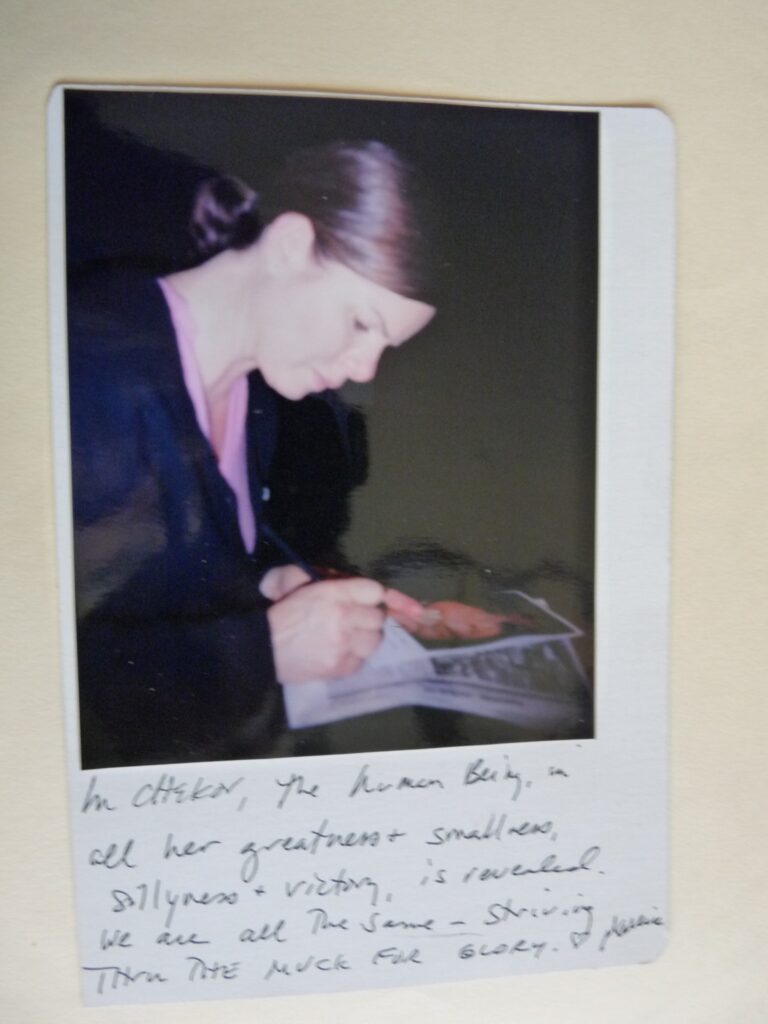 In CHEKOV, The human Being, in
all her greatness + smallness,
sillyness + victory, is revealed.
We are all The same - striving
THRU THE MUCK FOR GLORY. ♡